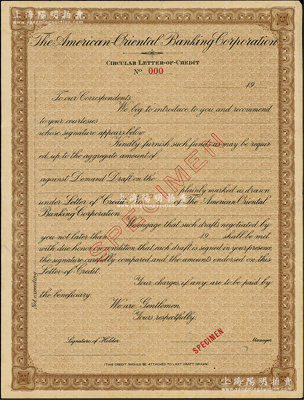 上海阳明拍卖
The American-Oriental Banking Corporation
CIRCULAR LETTER-OF-CREDIT
No. 000
19
To our Correspondents
We beg to introduce to you and recommend
to your courtesies
whose signature appears below
Kindly furnish such funds as may be requir-
ed, up to the aggregate amount of
against Demand Draft on the
plainly marked as drawn
under Letter of Credit No. The American Oriental
Banking Corporation
We engage that such drafts negotiated by
you not later than 19 shall be met
with due honor on condition that each draft is signed in your presence,
the signature carefully compared and the amounts endorsed on this
Letter of Credit
Your charges, if any, are to be paid by
the beneficiary
We are, Gentlemen,
Yours respectfully,
SPECIMEN
Not exceeding
SPECIMEN
Signature of Holder
Manager
(THIS CREDIT SHOULD BE ATTACHED TO LAST DRAFT DRAWN)
上海阳明拍卖